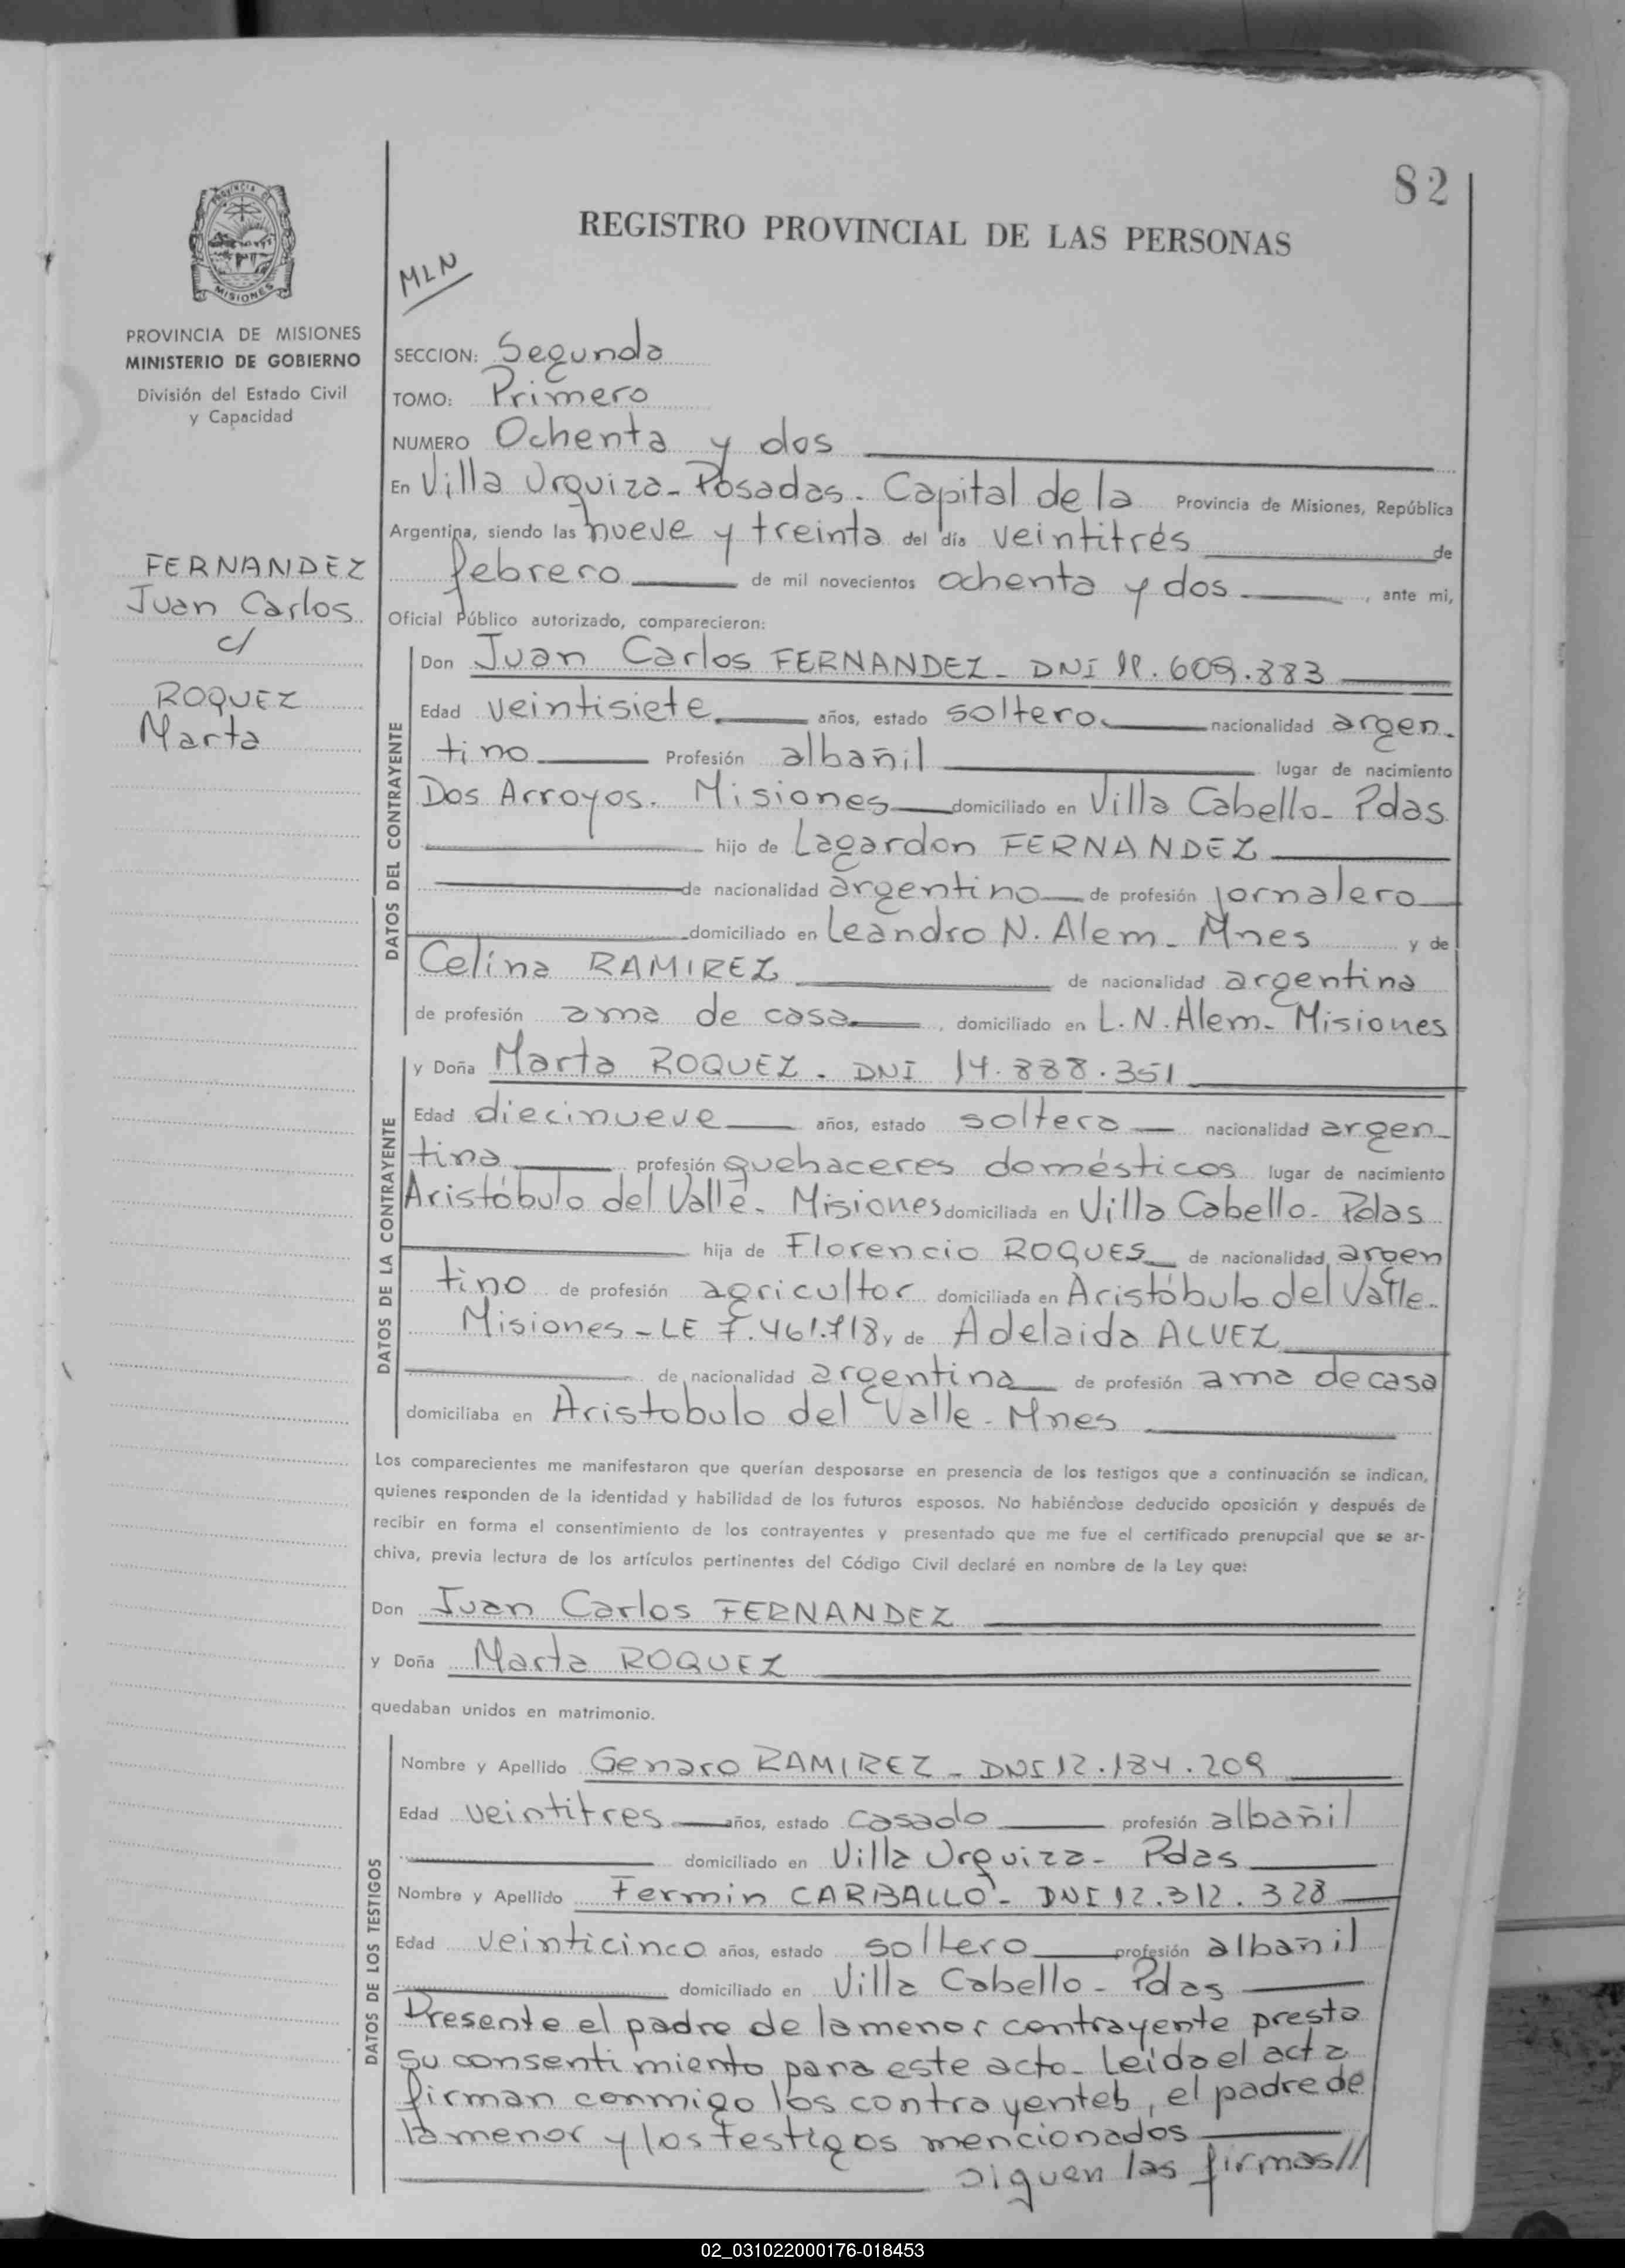 82
REGISTRO PROVINCIAL DE LAS PERSONAS
MLN
PROVINCIA DE MISIONES
MINISTERIO DE GOBIERNO
División del Estado Civil
y Capacidad
FERNANDEZ
Juan Carlos
c/
ROQUEZ
Marta
SECCION: Segunda
TOMO: Primero
NUMERO Ochenta y dos
En Villa Urquiza - Posadas - Capital de la Provincia de Misiones, República
Argentina, siendo las nueve y treinta del día veintitrés de
febrero de mil novecientos ochenta y dos, ante mi,
Oficial Público autorizado, comparecieron:
DATOS DEL CONTRAYENTE
Don Juan Carlos FERNANDEZ - DNI 11.609.883
Edad veintisiete años, estado soltero nacionalidad argen-
tino Profesión albañil lugar de nacimiento
Dos Arroyos. Misiones domiciliado en Villa Cabello - Pdas
hijo de Lagardon FERNANDEZ
de nacionalidad argentino de profesión jornalero
domiciliado en Leandro N. Alem - Mnes y de
Celina RAMIREZ de nacionalidad argentina
de profesión ama de casa, domiciliado en L. N. Alem - Misiones
DATOS DE LA CONTRAYENTE
y Doña Marta ROQUEZ - DNI 14.888.351
Edad diecinueve años, estado soltera nacionalidad argen-
tina profesión quehaceres domésticos lugar de nacimiento
Aristóbulo del Valle - Misiones domiciliada en Villa Cabello - Pdas
hija de Florencio ROQUES de nacionalidad argen
tino de profesión agricultor domiciliada en Aristóbulo del Valle -
Misiones - LE 7.461.718 y de Adelaida ALVEZ
de nacionalidad argentina de profesión ama de casa
domiciliaba en Aristobulo del Valle - Mnes
Los comparecientes me manifestaron que querían desposarse en presencia de los testigos que a continuación se indican,
quienes responden de la identidad y habilidad de los futuros esposos. No habiéndose deducido oposición y después de
recibir en forma el consentimiento de los contrayentes y presentado que me fue el certificado prenupcial que se ar-
chiva, previa lectura de los artículos pertinentes del Código Civil declaré en nombre de la Ley que:
Don Juan Carlos FERNANDEZ
y Doña Marta ROQUEZ
quedaban unidos en matrimonio.
DATOS DE LOS TESTIGOS
Nombre y Apellido Genaro RAMIREZ - DNI 12.184.209
Edad veintitres años, estado casado profesión albañil
domiciliado en Villa Urquiza - Pdas
Nombre y Apellido Fermin CARBALLO - DNI 12.312.328
Edad veinticinco años, estado soltero profesión albañil
domiciliado en Villa Cabello - Pdas
Presente el padre de la menor contrayente presta
su consentimiento para este acto - Leída el acta
firman conmigo los contrayentes, el padre de
la menor y los testigos mencionados
siguen las firmas//
02_031022000176-018453